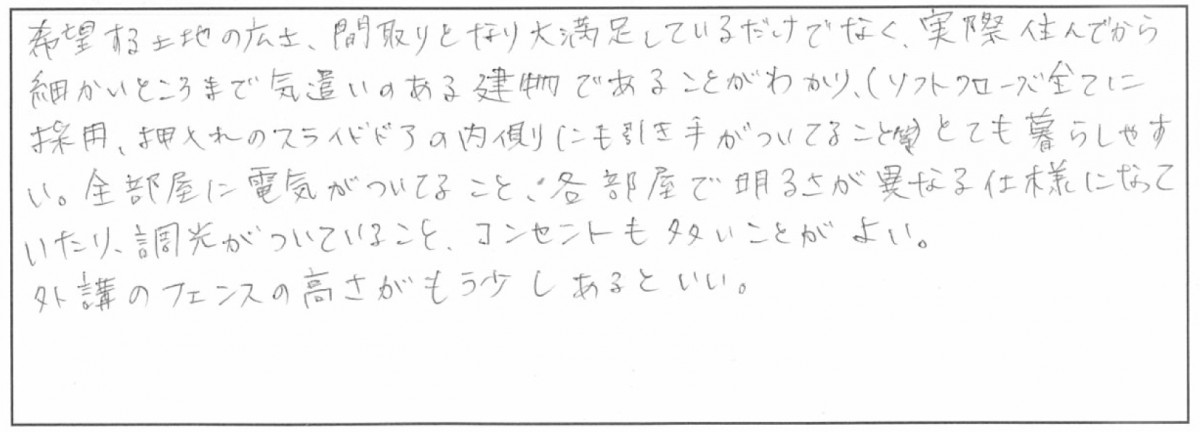 希望する土地の広さ、間取りとなり大満足しているだけでなく、実際住んでから
細かいところまで気遣いのある建物であることがわかり、(ソフトクローズ全てに
採用、押入れのスライドドアの内側にも引き手がついてること等)とても暮らしやす
い。全部屋に電気がついてること、各部屋で明るさが異なる仕様になって
いたり、調光がついていること、コンセントも多いことがよい。
外講のフェンスの高さがもう少しあるといい。